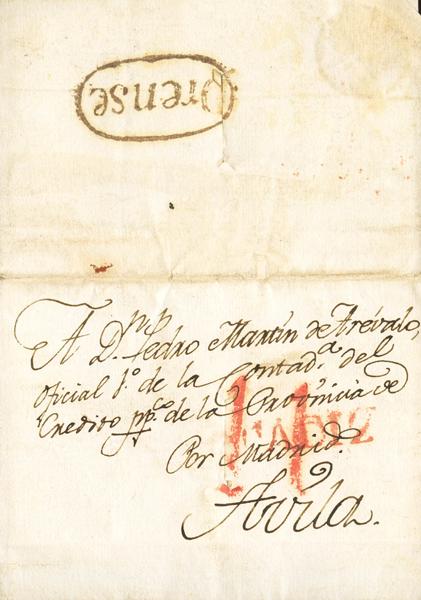 Orense
A D.ⁿ Pedro Martín de Arévalo,
Oficial 1.º de la Contad.ª del
Credito pp.co de la Provincia de
CADIZ
Por Madrid.
Avila.